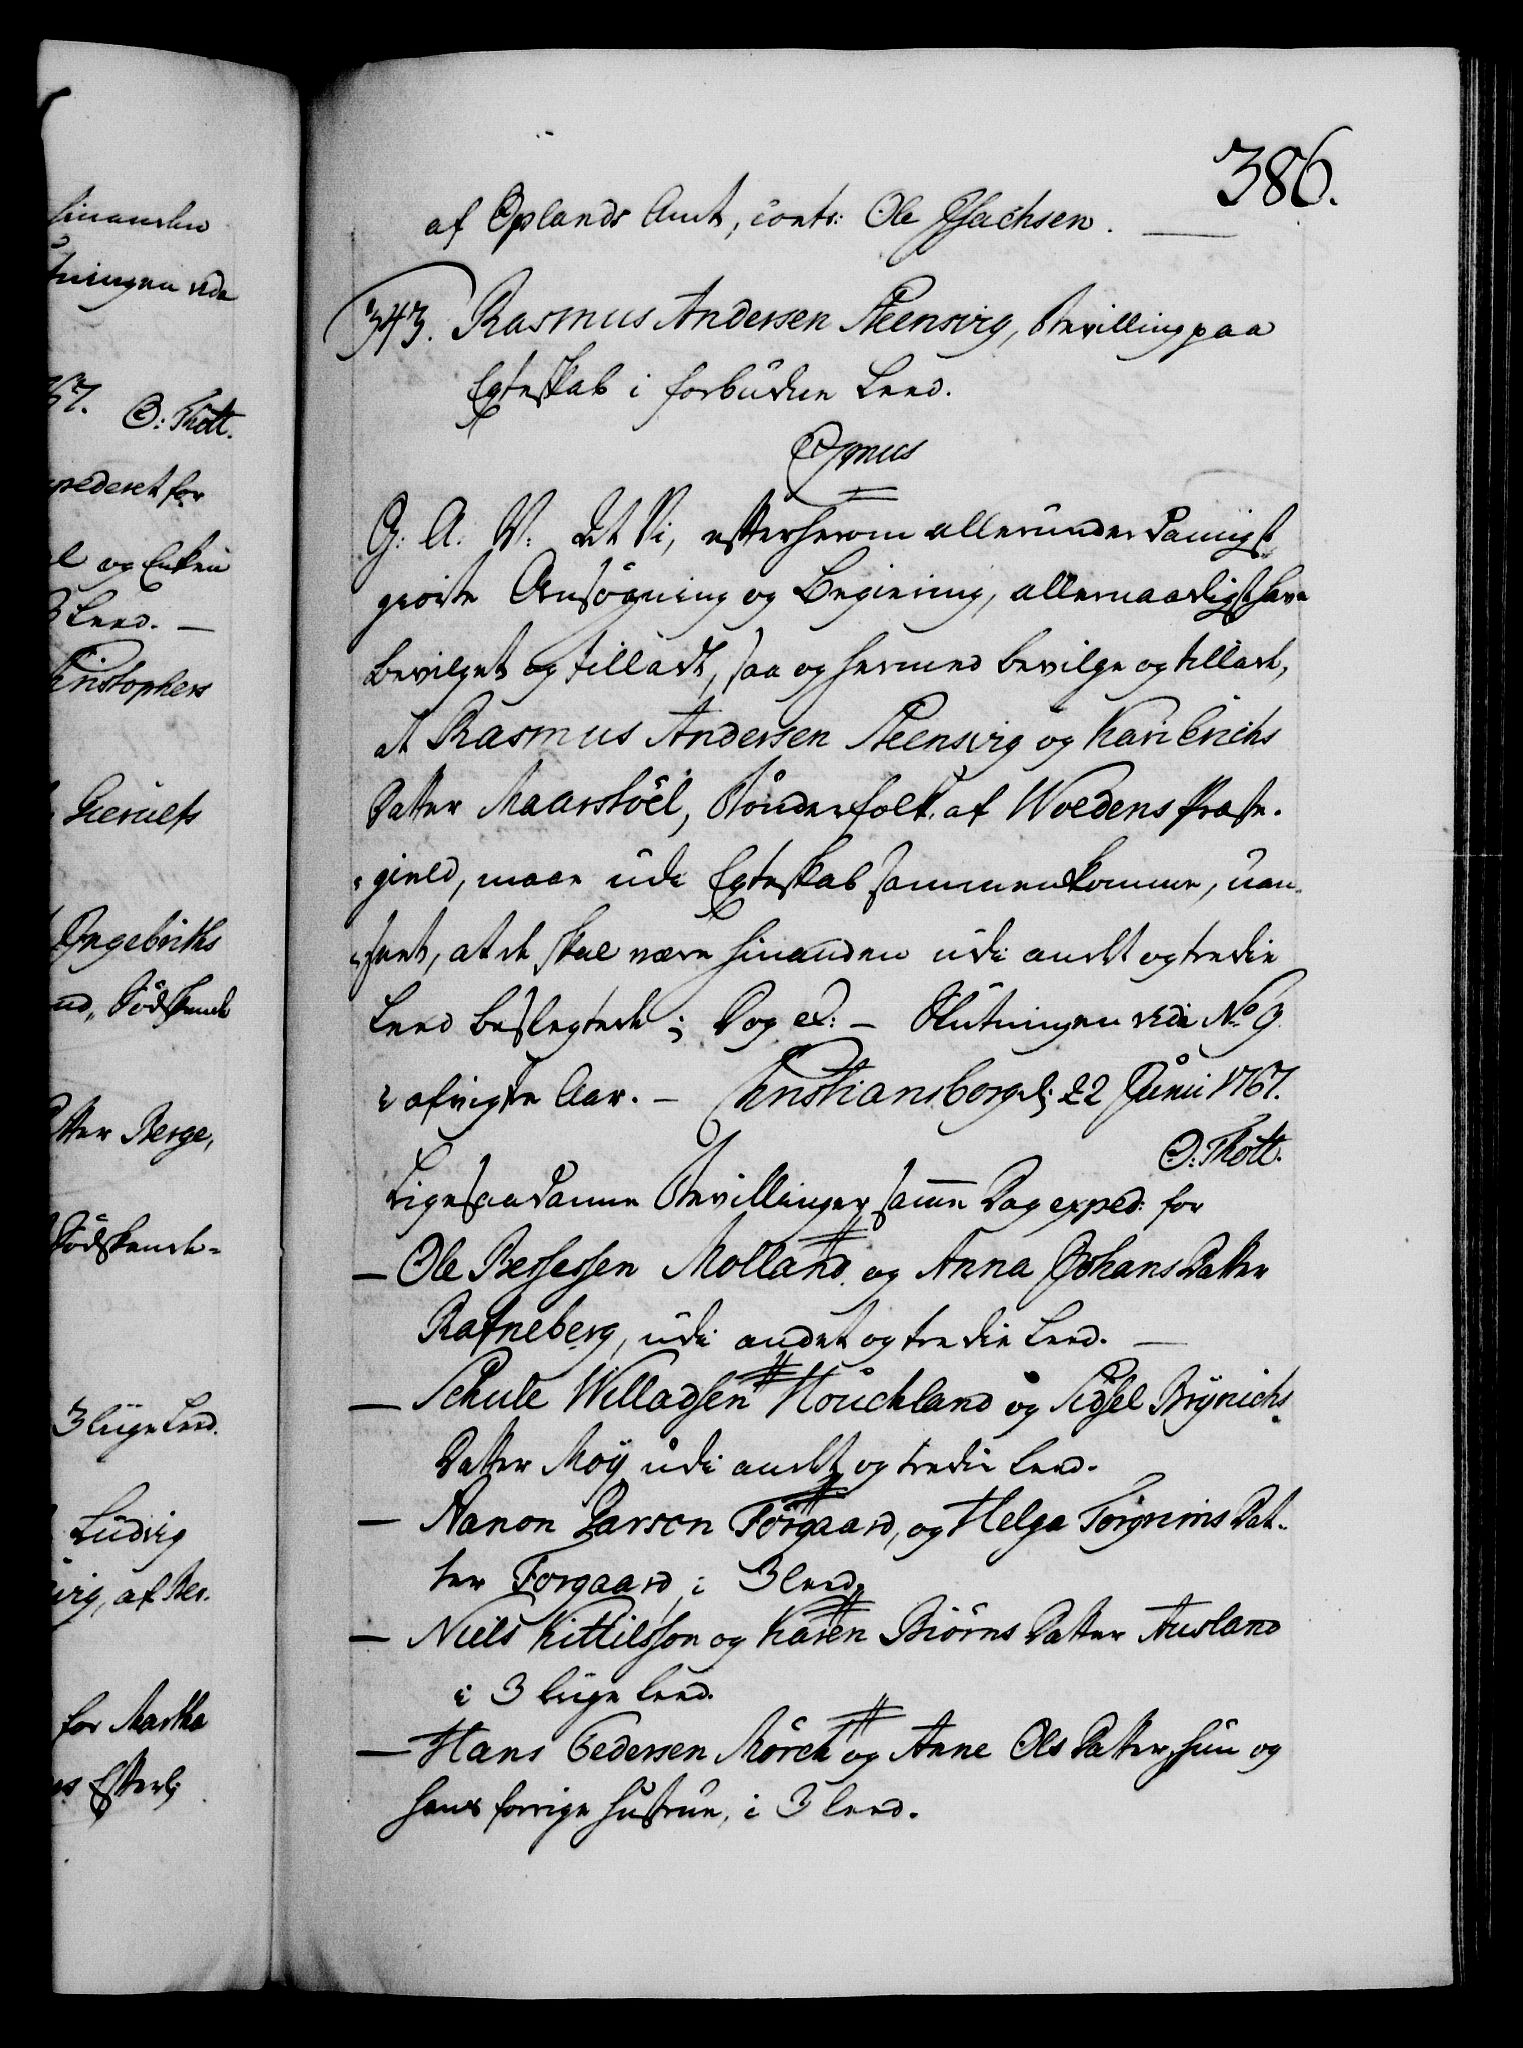 386.
af Oplands Amt, contr: Ole Jsachsen.
343. Rasmus Andersen Steensvig, Bevilling paa
Egteskab i forbuden Leed.
C7mus
G. A. V. At Vi, efter herom allerunderdanigst
giorte Ansøgning og Begiering, allernaadigst have
bevilget og tilladt, saa og hermed bevilge og tillade,
at Rasmus Andersen Steensvig og Kari Erichs
Datter Maarstöel, Bönderfolk af Woldens Præste-
gield, maae udi Egteskab sammenkomme, uan-
seet, at de skal være hinanden udi andet og tredie
Leed beslegtede; Dog etc: - Slutningen vide No 9
i afvigte Aar. - Christiansborg d: 22 Junii 1767.
O. Thott.
Ligesaadanne Bevillinger samme Dag exped: for
- Ole Bessessen Molland og Anna Johans Datter
Rafneberg, udi andet og tredie Leed. -
- Schule Willadsen Houchland og Sidsel Brynichs
Datter Moy udi andet og tredie Leed.
- Aanon Larsen Forgaard, og Helga Torgrims Dat-
ter Forgaard, i 3 Leed,
- Niels Kittilsson og Karen Biörns Datter Ausland
i 3 liige Leed.
- Hans Pedersen Mörch og Anne Ols Datter, hun og
hans forrige Hustrue, i 3 Leed.
hinanden
Slutningen vide
67. O. Thott.
expederet for
og Enken
3 Leed. -
Christophers
Gieruls
Engebriths
Södskende
Datter Berge,
Södskende-
3 liige Leed.
Ludvig
af Ber-
for Martha
Efterl: